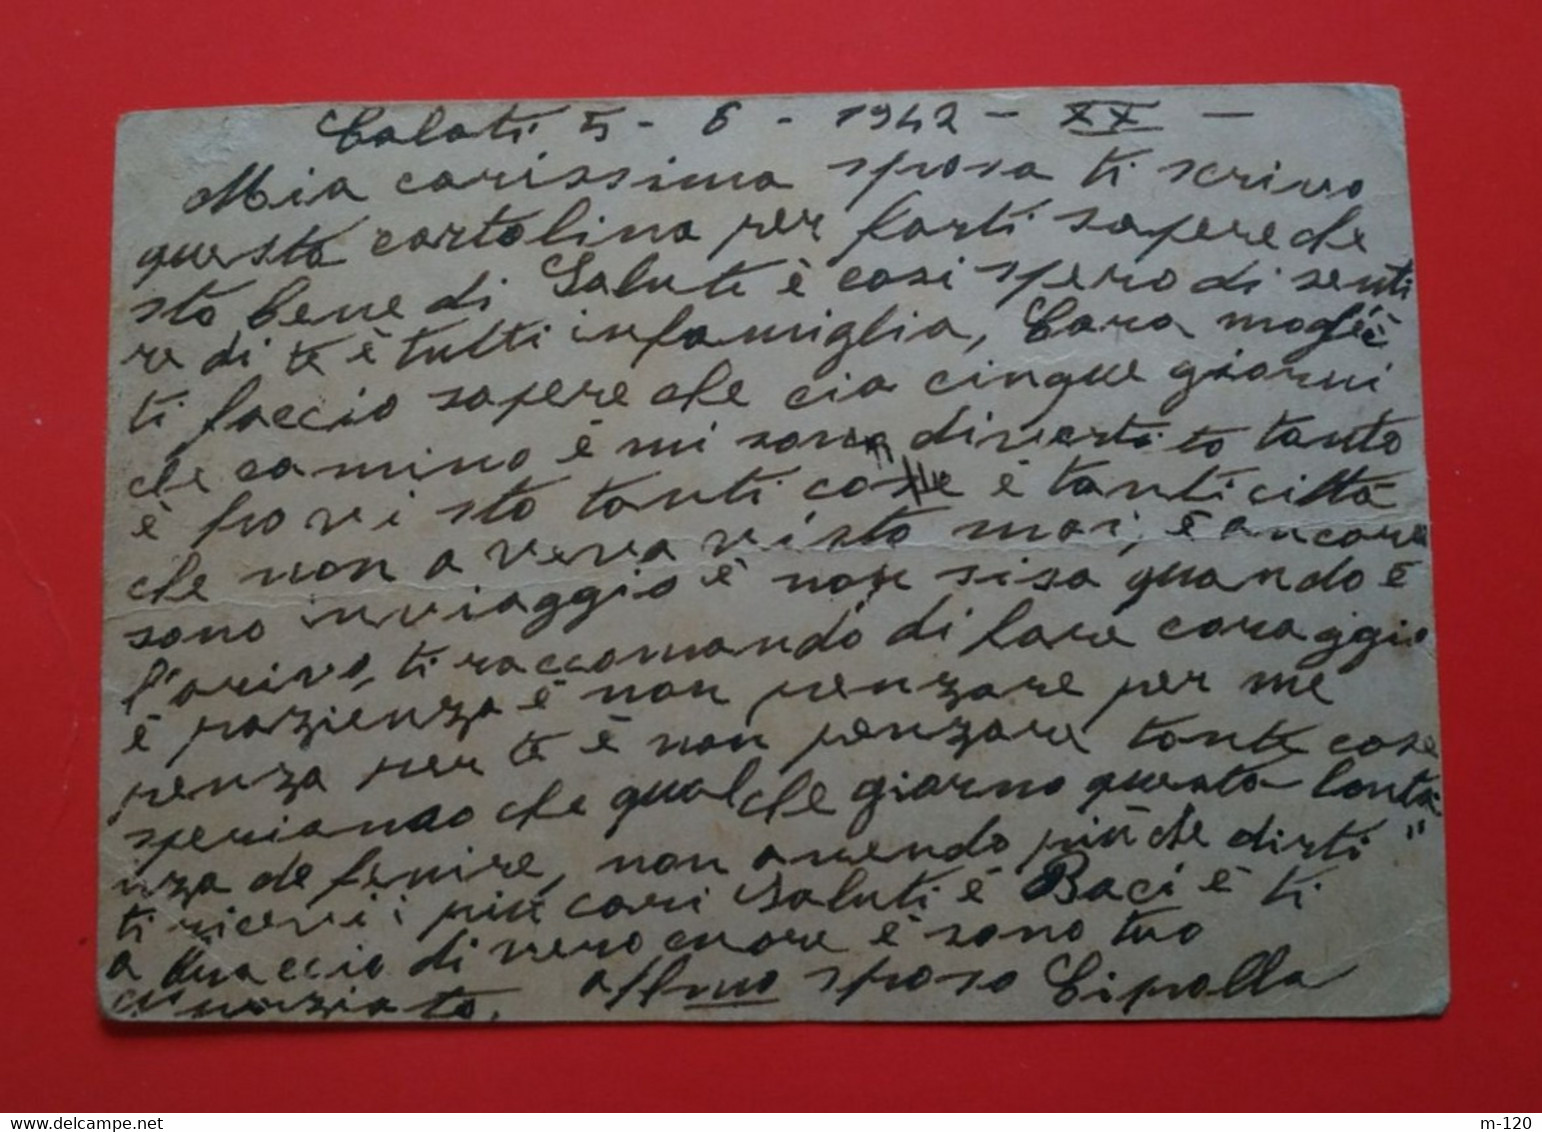 Galati 5 - 6 - 1942 - XX -
Mia carissima sposa ti scrivo
questa cartolina per farti sapere che
sto bene di Saluti è cosi spero di senti
re di te è tutti infamiglia, Cara moglie è
ti faccio sapere che cia cinque giorni
che camino è mi sono divertito tanto
è ho visto tanti cose è tanti città
che non aveva visto mai, è ancora
sono inviaggio è non sisa quando è
l'arivo, ti raccomando di fare coraggio
è pazienza è non penzare per me
penza per te è non penzare tante cose
speriamo che qualche giorno questa lonta
inza de fenire, non avendo più che dirti "
ti ricevi i più cari Saluti è Baci è ti
abbraccio di vero cuore è sono tuo
affmo sposo Cipolla
Nunziato.
m-120
www.delcampe.net